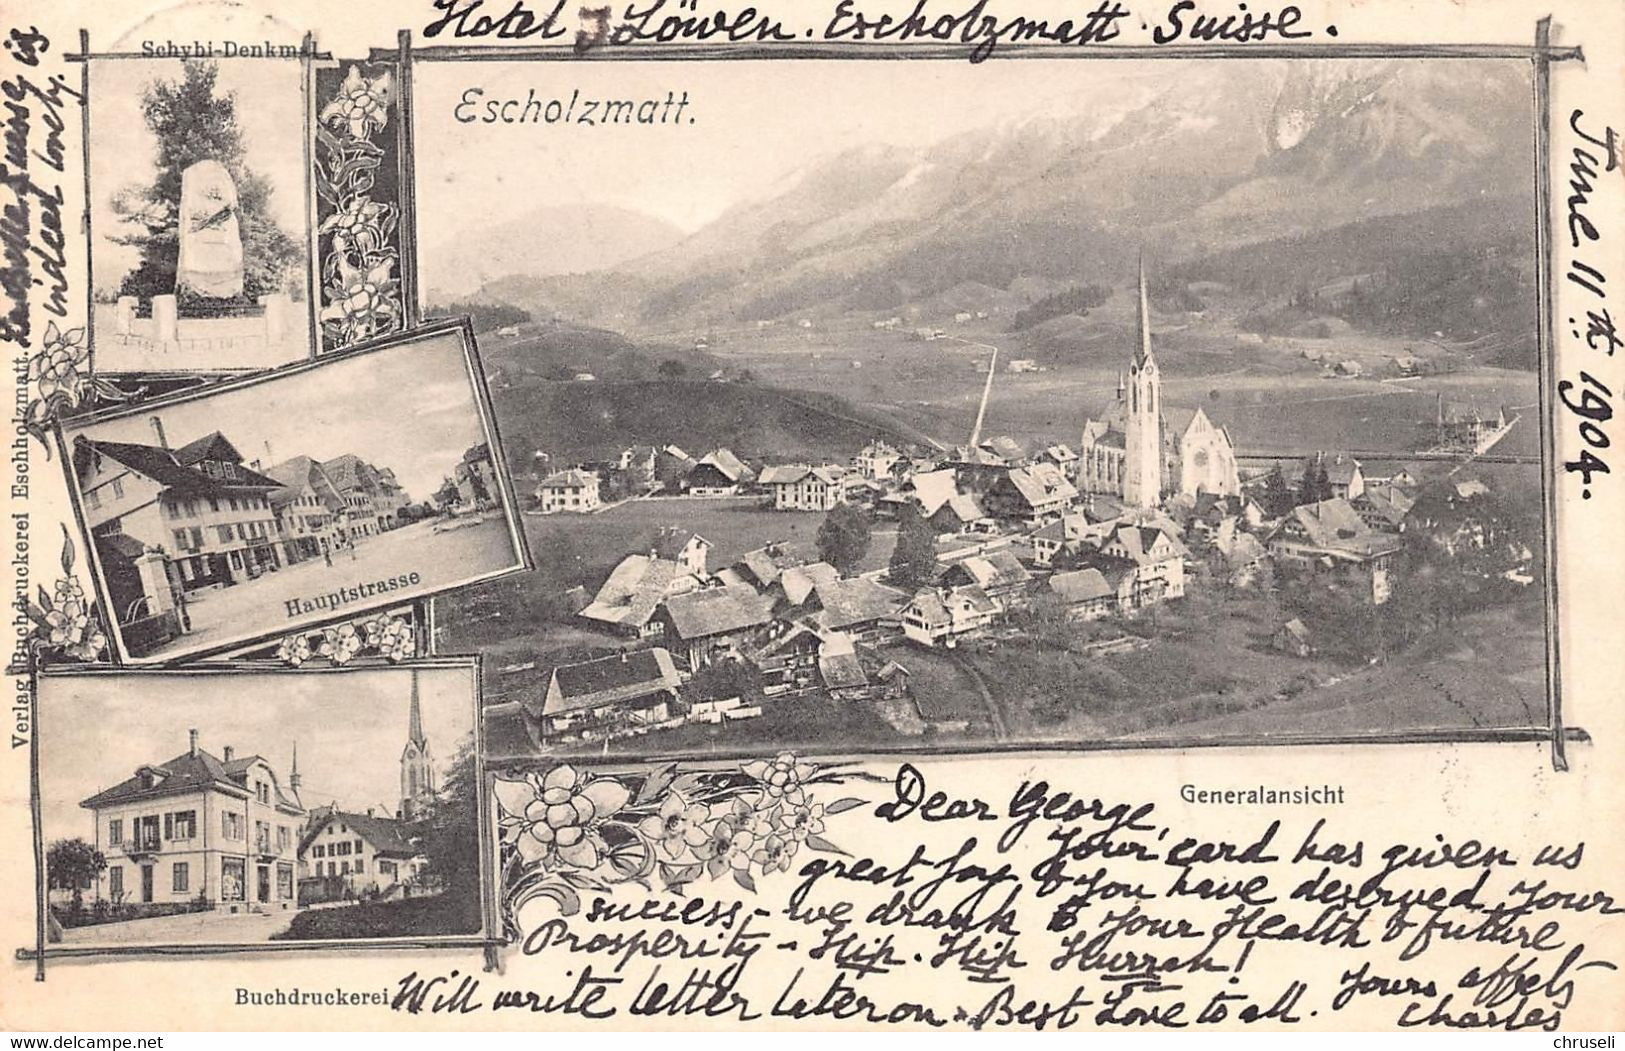 Hotel z Löwen. Escholzmatt Suisse.
June 11th 1904.
Suisse is
indeed lovely.
Schybi-Denkmal
Escholzmatt.
Hauptstrasse
Verlag Buchdruckerei Eschholzmatt.
Generalansicht
Buchdruckerei
Dear George,
Your card has given us
great joy & you have deserved your
success - we drank to your Health & future
Prosperity - Hip. Hip Hurrah!
Will write letter later on. Best Love to all.
Yours affectly
Charles
chruseli